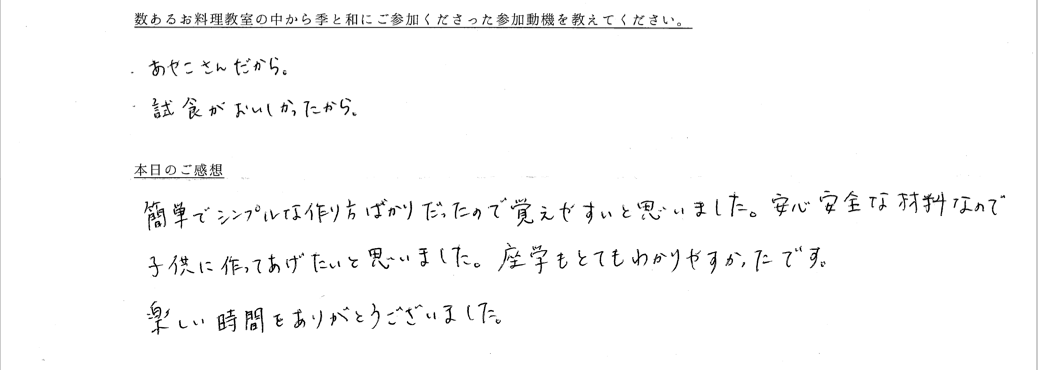 数あるお料理教室の中から季と和にご参加くださった参加動機を教えてください。
・あやこさんだから。
・試食がおいしかったから。
本日のご感想
簡単でシンプルな作り方ばかりだったので覚えやすいと思いました。安心安全な材料なので
子供に作ってあげたいと思いました。座学もとてもわかりやすかったです。
楽しい時間をありがとうございました。